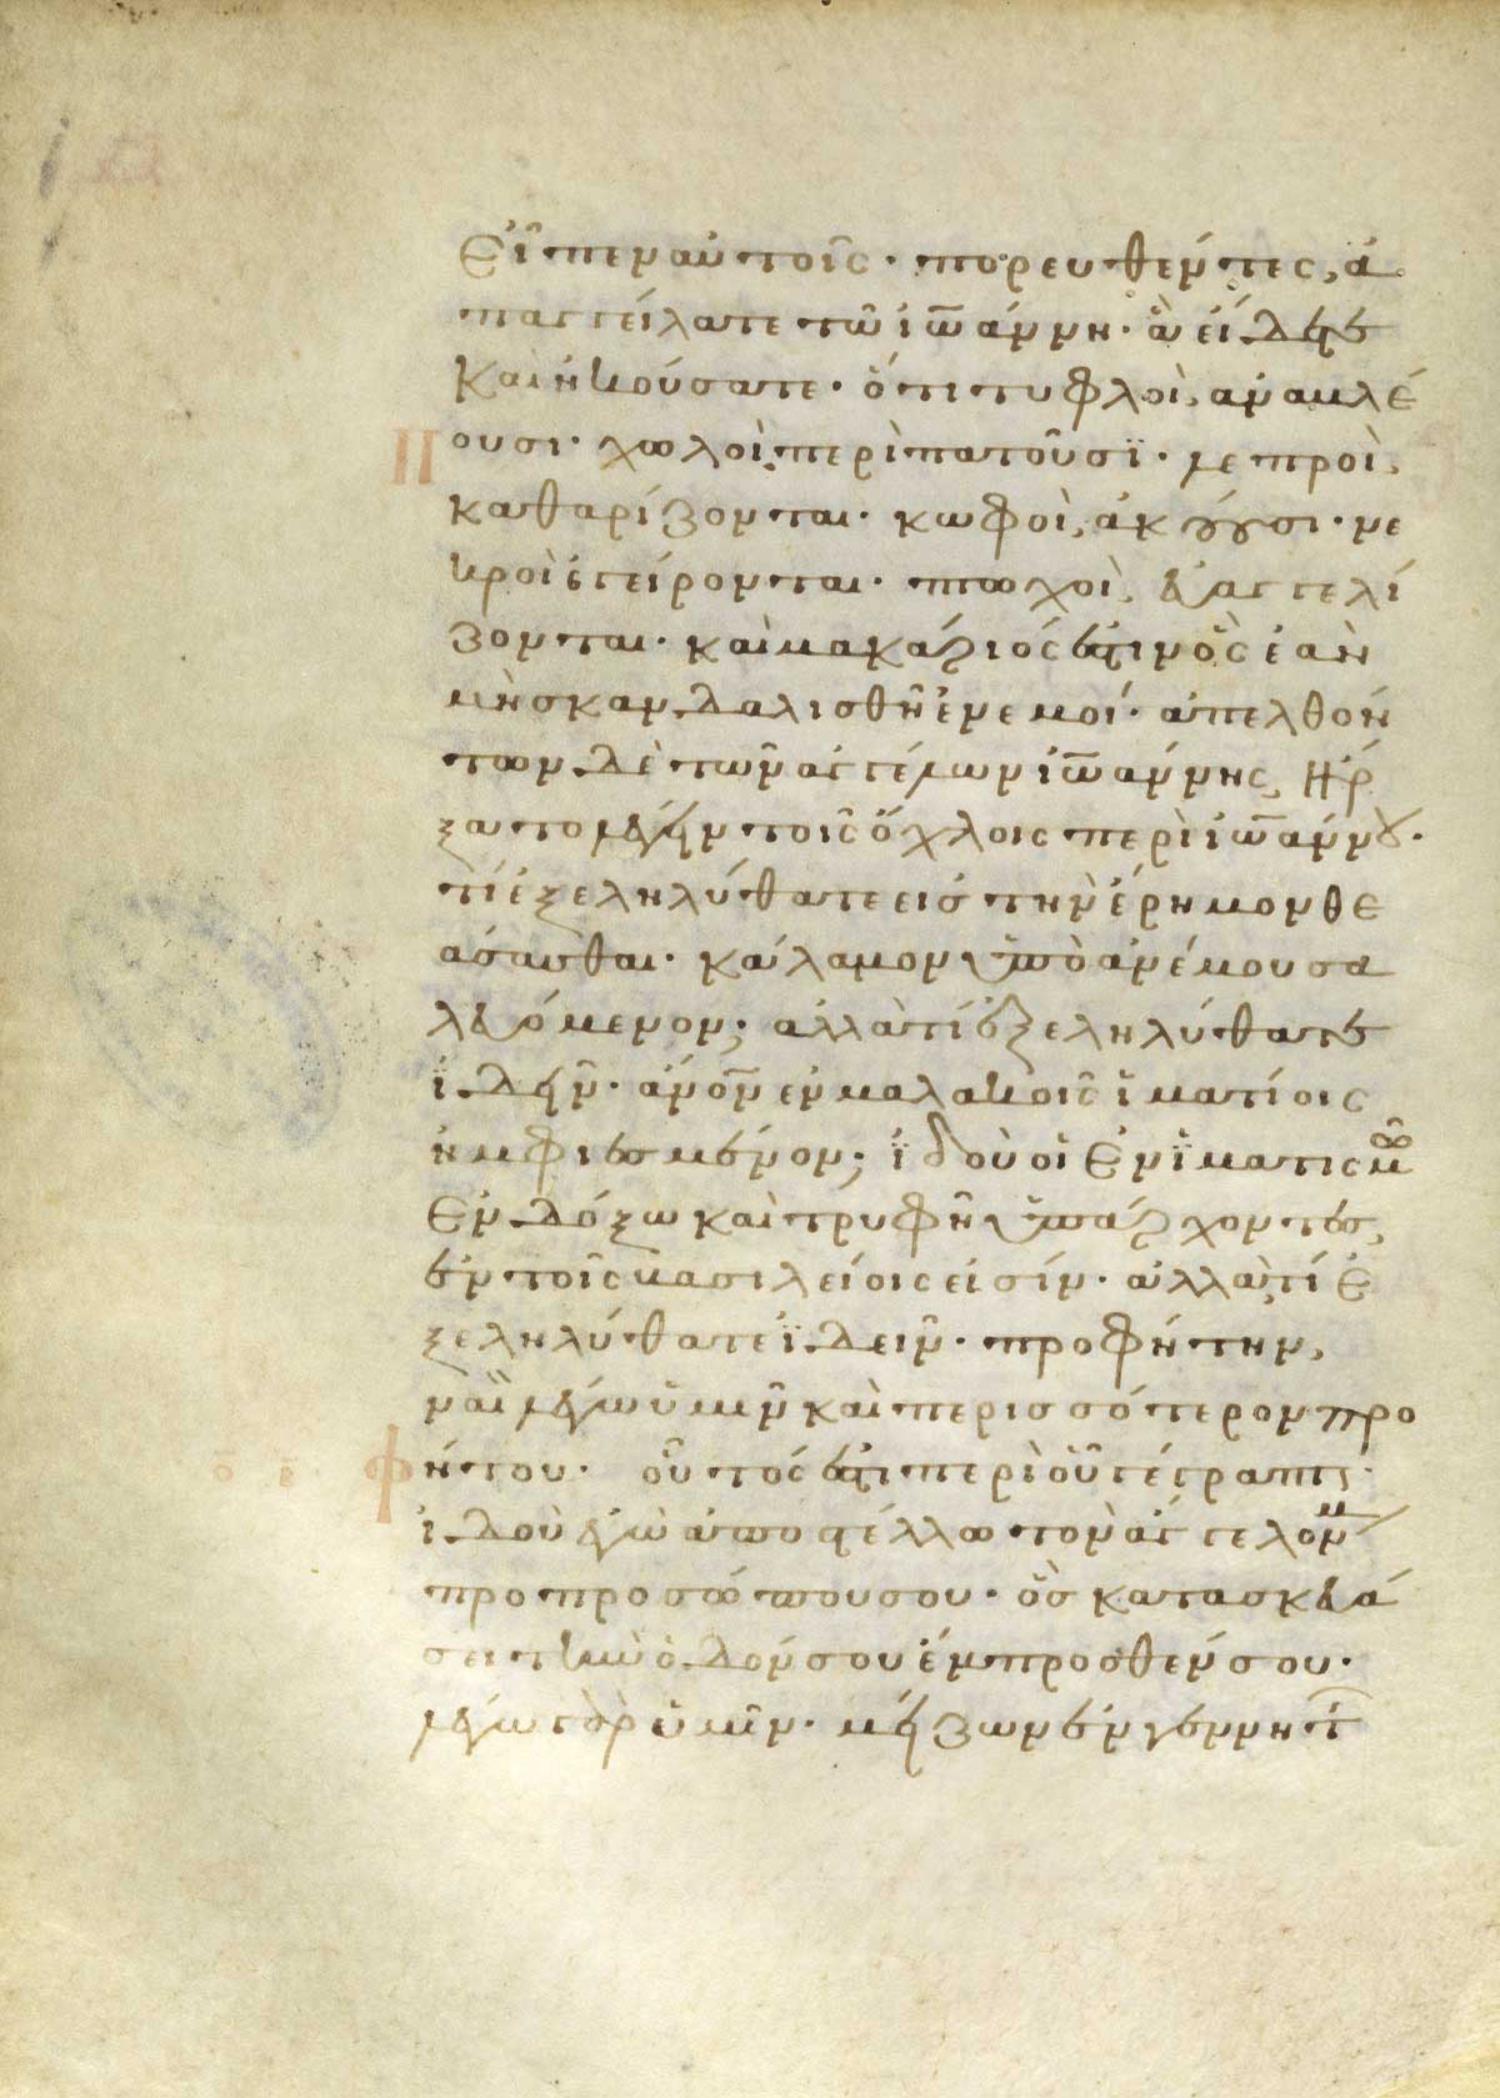 εἶπεν αὐτοῖς· πορευθέντες, ἀ
παγγείλατε τῶ ἰω̅άννη· ἃ εἴδετε
καὶ ἠκούσατε· ὅτι τυφλοὶ, αναβλέ
ουσι· χωλοὶ περὶπατοῦσϊ· λεπροὶ,
καθαρίζονται· κωφοὶ, ἀκούουσι· νε
κροὶ ἐγείρονται· πτωχοὶ, εὐαγγελί
ζονται· καὶ μακάριός ἐστιν ὃς ἐὰν
μὴ σκανδαλισθῆ ἐν εμοί· ἀπελθόν
των δὲ τῶν ἀγγέλων ἰω̅άννης, ἤρ
ξατο λέγειν τοῖς ὄχλοις περὶ ἰω̅άννου·
τί ἐξεληλύθατε εισ τὴν ἔρημον θε
άσασθαι· κάλαμον ὑπὸ ἀνέμου σα
λευόμενον; αλλὰ τί ἐξεληλύθατε
ϊδεῖν· ἄν̅ο̅ν̅ εν μαλακοῖς ἱματίοις
ἠμφιεσμένον; ϊδοὺ οἱ ἐν ϊματισμῶ
ἐνδόξω καὶ τρυφῆ ὑπάρχοντες,
ἐν τοῖς βασιλείοις εἰσίν· ἀλλὰ τί ἐ
ξεληλύθατε ϊδεῖν· προφήτην,
ναὶ λέγω ὑμῖν καὶ περισσότερον προ
φήτου· οὗτός ἐστι περὶ οὗ γέγραπται·
ο̅ ε̅
ἰδοὺ ἐγὼ ἀποστέλλω τὸν ἄγγελόν μου
προ προσώπου σου· ὃσ κατασκευά
σει τὴν ὁδόν σου ἔμπροσθέν σου·
λέγω γὰρ ὑμῖν· μείζων ἐν γεννητοῖ